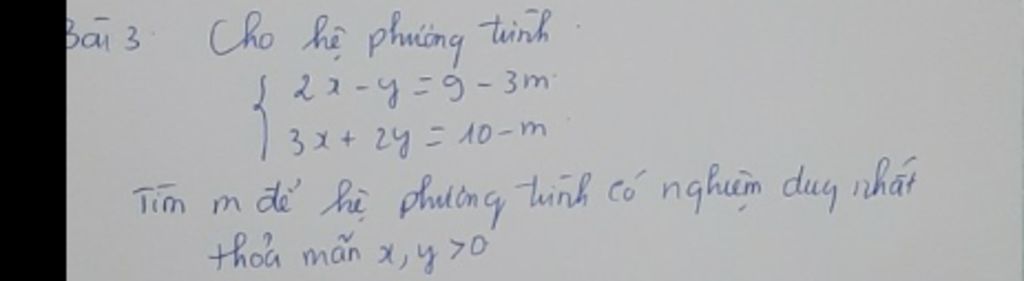 Bài 3. Cho hệ phương trình.
2x - y = 9 - 3m
3x + 2y = 10 - m
Tìm m để hệ phương trình có nghiệm duy nhất
thỏa mãn x, y > 0